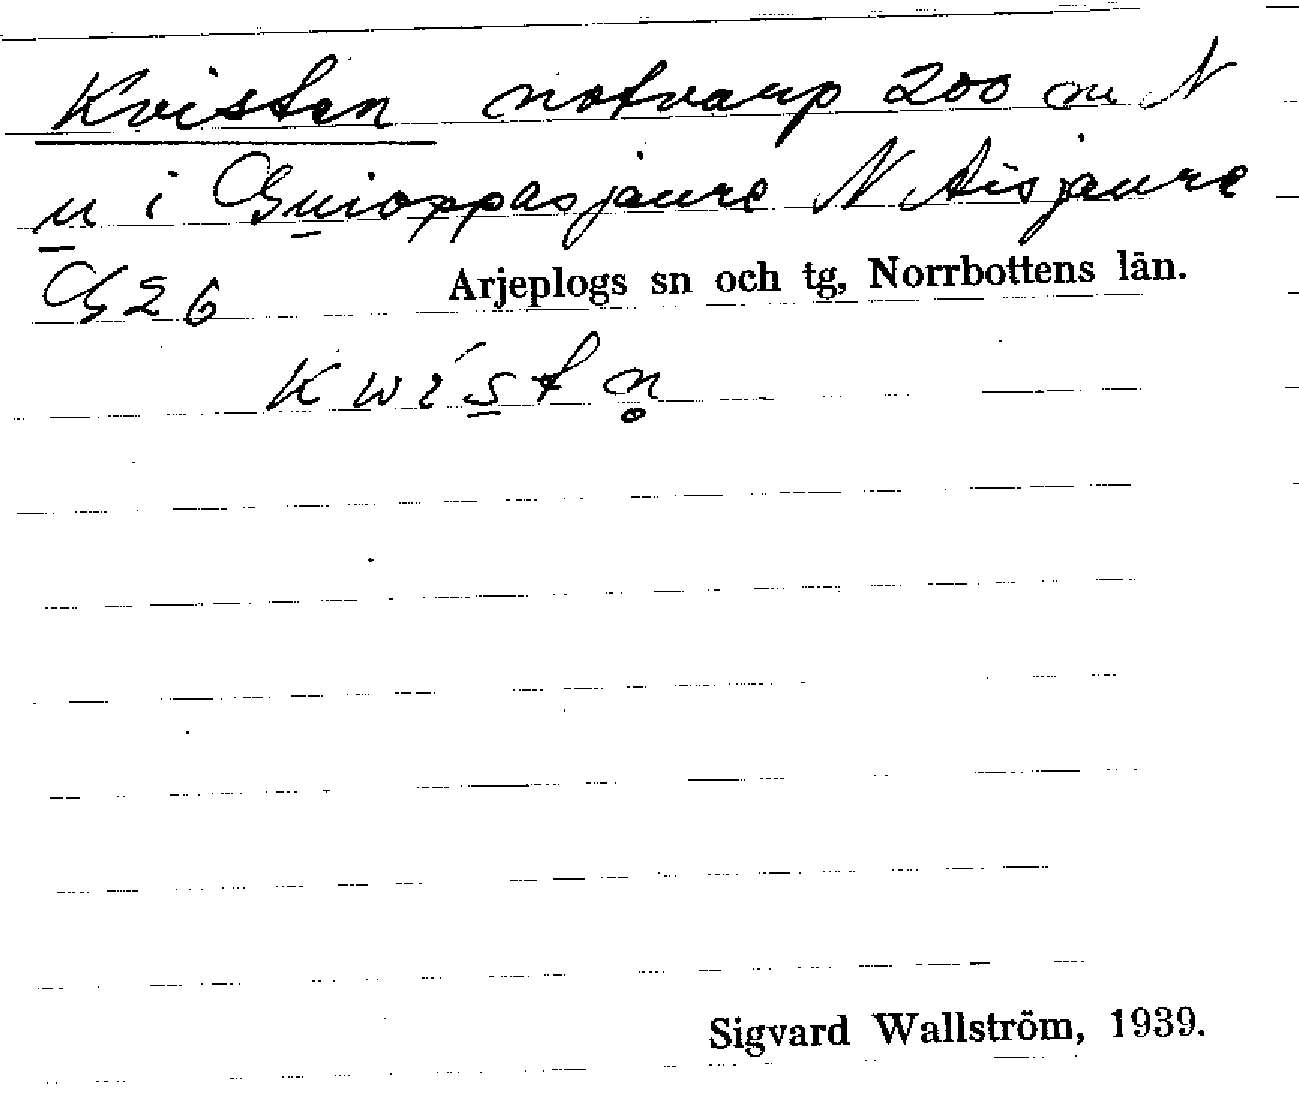 Kvisten notvarp 200 m N
u i Guioppasjaure N Aisjaure
G26 Arjeplogs sn och tg, Norrbottens län.
kwís̲tn̥
Sigvard Wallström, 1939.